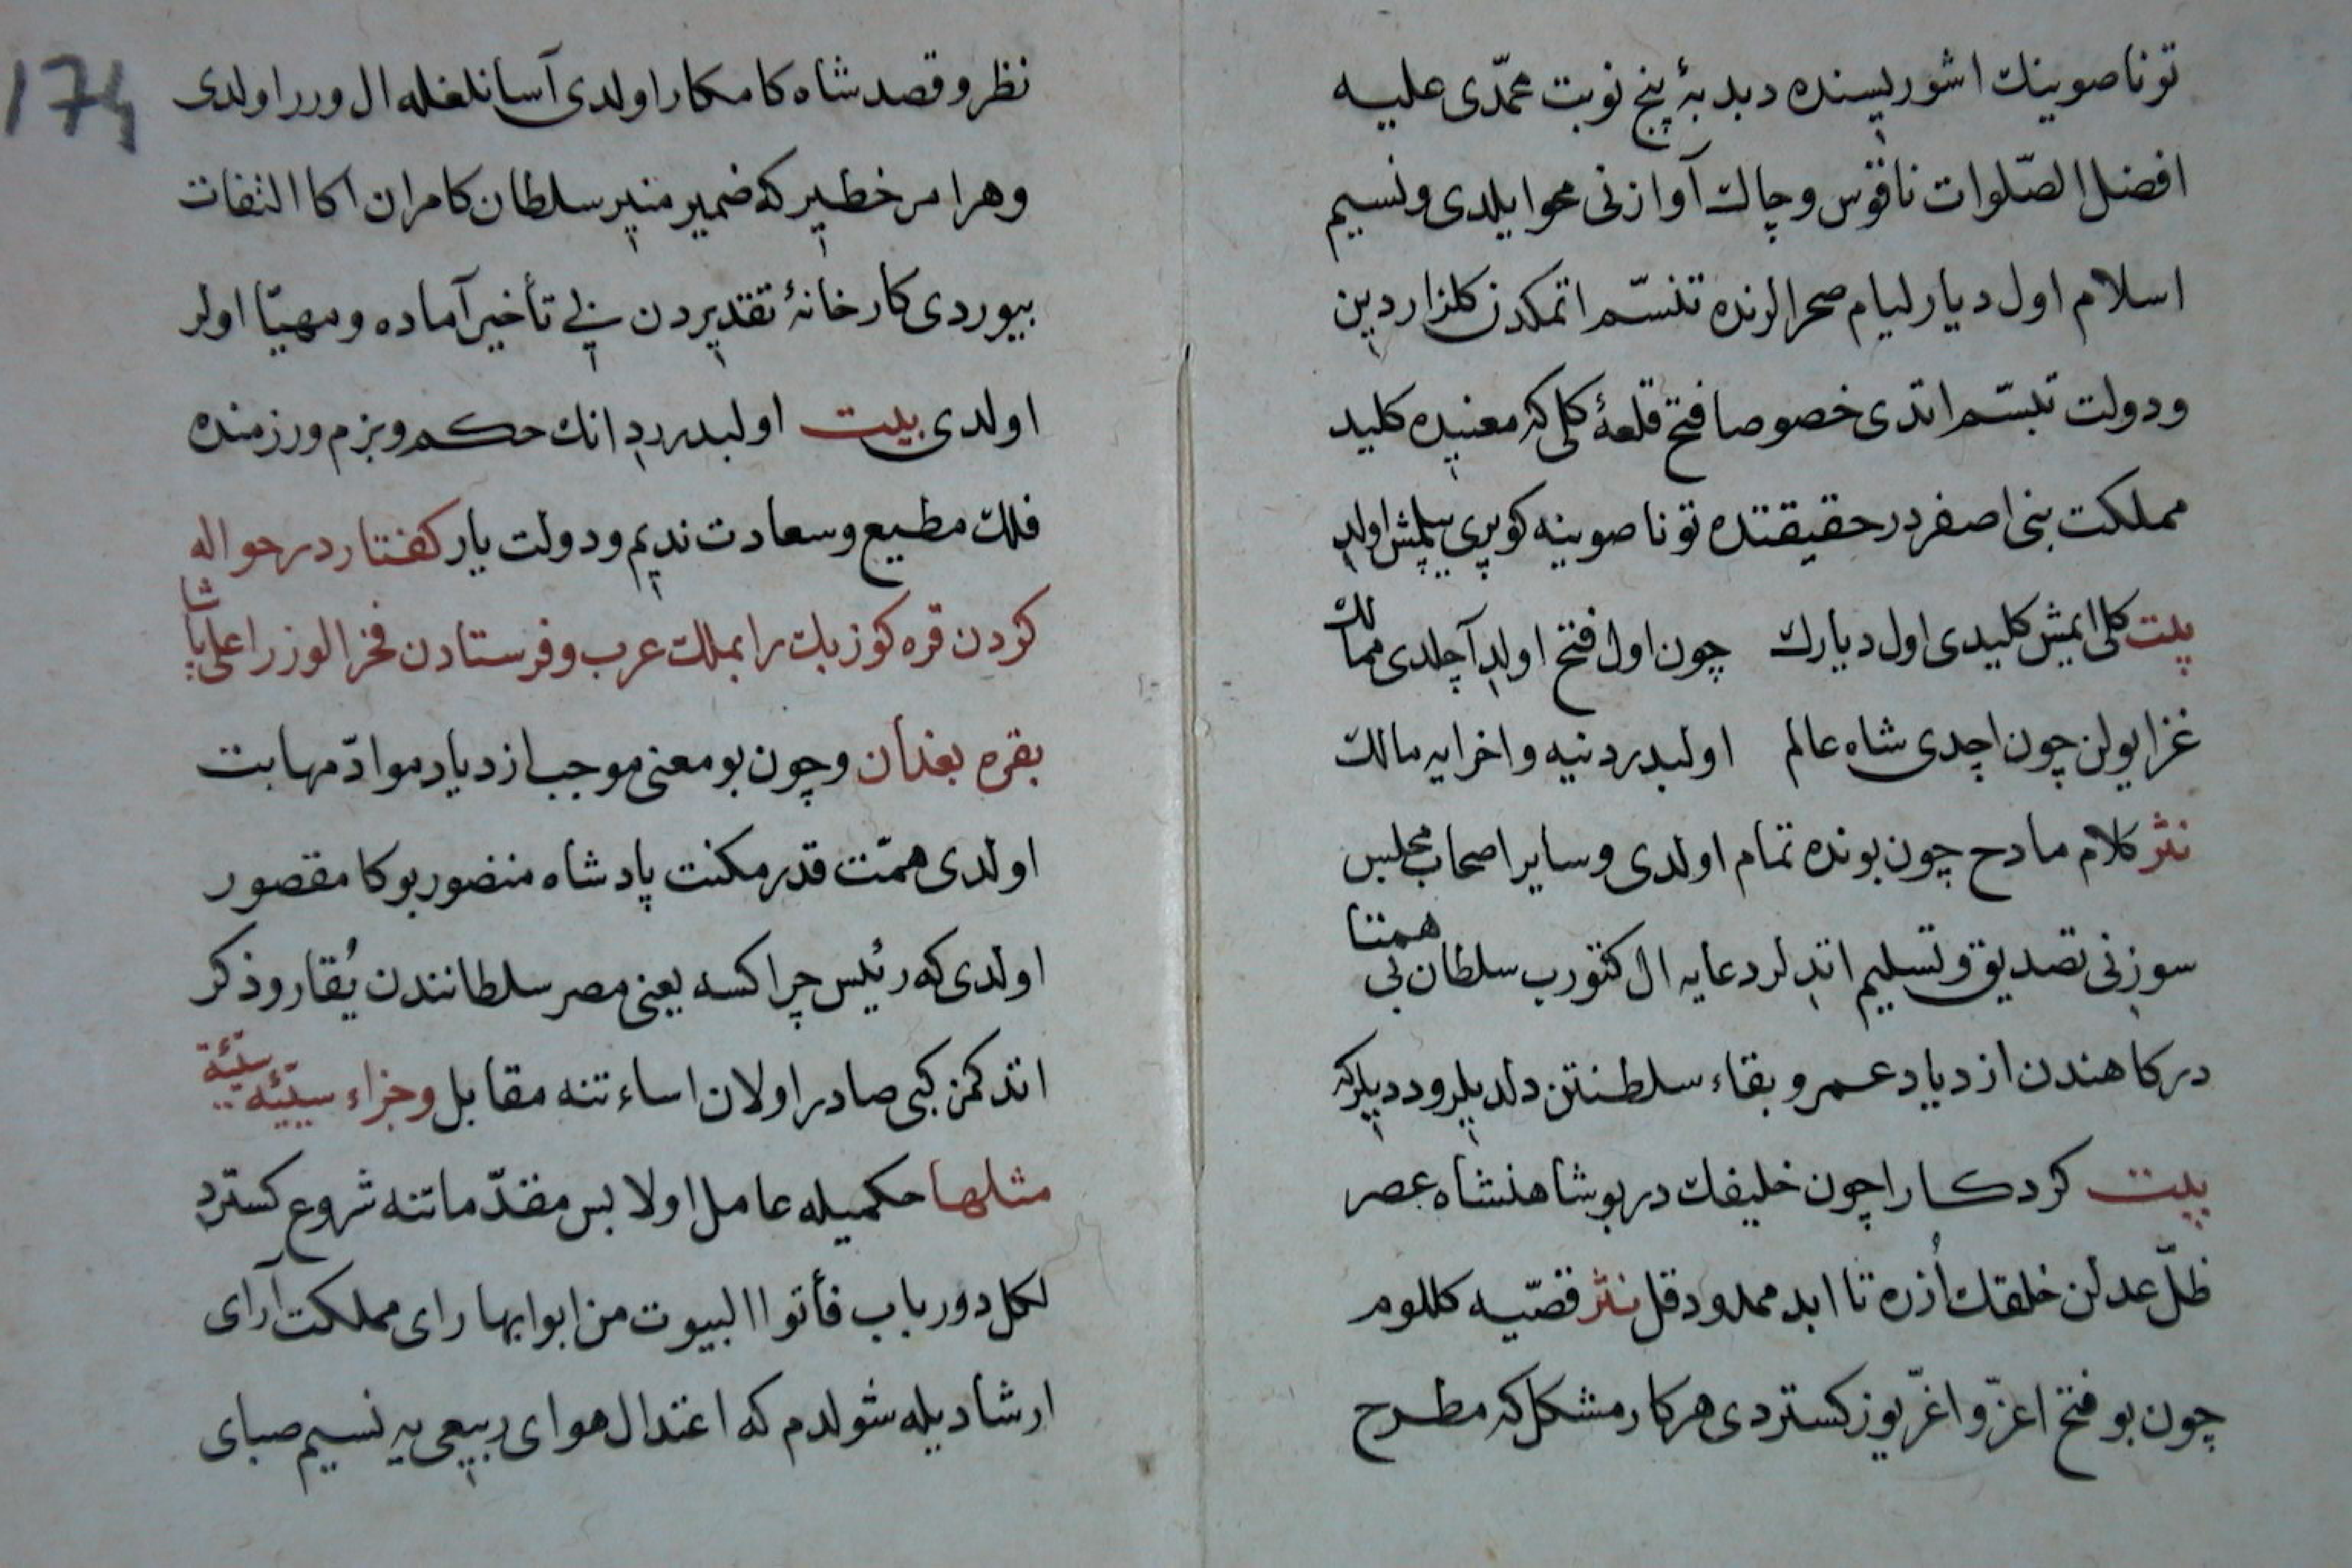 تونا صوینك اشوریسنده دبدبهٔ پنج نوبت محمّدی علیه
افضل الصّلوات ناقوس وچاك آوازنی محوایلدی ونسیم
اسلام اول دیار لیام صحرالرنده تنسّم اتمكدن كلزار دین
ودولت تبسّم اتدی خصوصا فتح قلعهٔ كلی كه معنیده كلید
مملكت بنی اصفردر حقیقتده تونا صوینه كوپری یپلمش اولدی
بیت كلی ایمش كلیدی اول دیارك چون اول فتح اولدی آچلدی ممالك
غزا یولن چون اچدی شاه عالم اولبدر دنیه واخرایه مالك
نثر كلام مادح چون بونده تمام اولدی وسایر اصحاب مجلس
سوزنی تصدیق وتسلیم اتدلر دعایه ال كتورب سلطان بی همتا
دركاهندن ازدیاد عمر وبقاء سلطنتن دلدیلر ودیدیلر كه
بیت كردكارا چون خلیفك در بو شاهنشاه عصر
ظلّ عدلن خلقك اُزره تا ابد ممدود قل نثر قصّیه كللوم
چون بو فتح اعزّ واغرّ یوز كستردی هر كار مشكل كه مطرح
174
نظر وقصد شاه كامكار اولدی آسانلغله ال ورر اولدی
وهر امر خطیر كه ضمیر منیر سلطان كامران اكا التفات
بیوردی كارخانهٔ تقدیردن بی تأخیر آماده ومهیّا اولر
اولدی بیت اولبدر انك حكم وبزم ورزمنده
فلك مطیع وسعادت ندیم ودولت یار كفتار در حواله
كردن قره كوز بك را بملك عرب وفرستادن فخر الوزرا علی پاشا
بقره بغدان وچون بو معنی موجب ازدیاد موادّ مهابت
اولدی همّت قدر مكنت پادشاه منصور بوكا مقصور
اولدی كه رئیس چراكسه یعنی مصر سلطانندن یُقارو ذكر
اتدكمن كبی صادر اولان اساءتنه مقابل وجزاء سیّئه سیّئة
مثلها حكمیله عامل اولا بس مقدّماتنه شروع كستردی
لكل دور باب فأتوا البیوت من ابوابها رای مملكت آرای
ارشادیله شولدم كه اعتدال هوای ربیعی یه نسیم صبای